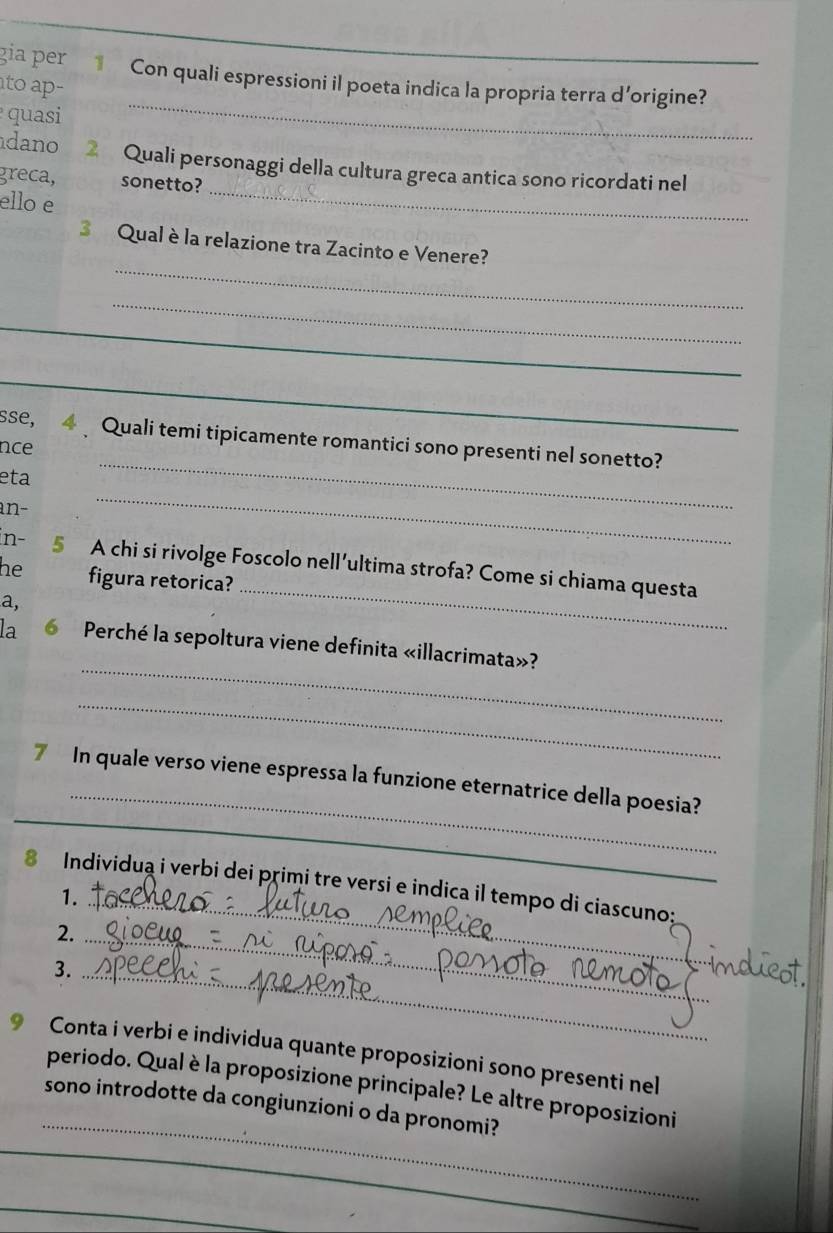 gia per
to ap-
quasi
dano
greca,
ello e
1 Con quali espressioni il poeta indica la propria terra d'origine?
2 Quali personaggi della cultura greca antica sono ricordati nel
sonetto?
3 Qual è la relazione tra Zacinto e Venere?
sse,
nce
eta
an-
in-
he
a,
la
4 Quali temi tipicamente romantici sono presenti nel sonetto?
5 A chi si rivolge Foscolo nell'ultima strofa? Come si chiama questa
figura retorica?
6 Perché la sepoltura viene definita «illacrimata»?
7 In quale verso viene espressa la funzione eternatrice della poesia?
8 Individua i verbi dei primi tre versi e indica il tempo di ciascuno:
1. toccherò = futuro semplice
2. giacque = si riposò = passato remoto
3. specchi = presente
indicat.
9 Conta i verbi e individua quante proposizioni sono presenti nel
periodo. Qual è la proposizione principale? Le altre proposizioni
sono introdotte da congiunzioni o da pronomi?